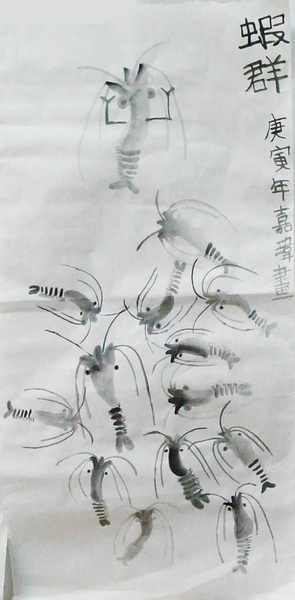 蝦群
庚寅年嘉葦畫